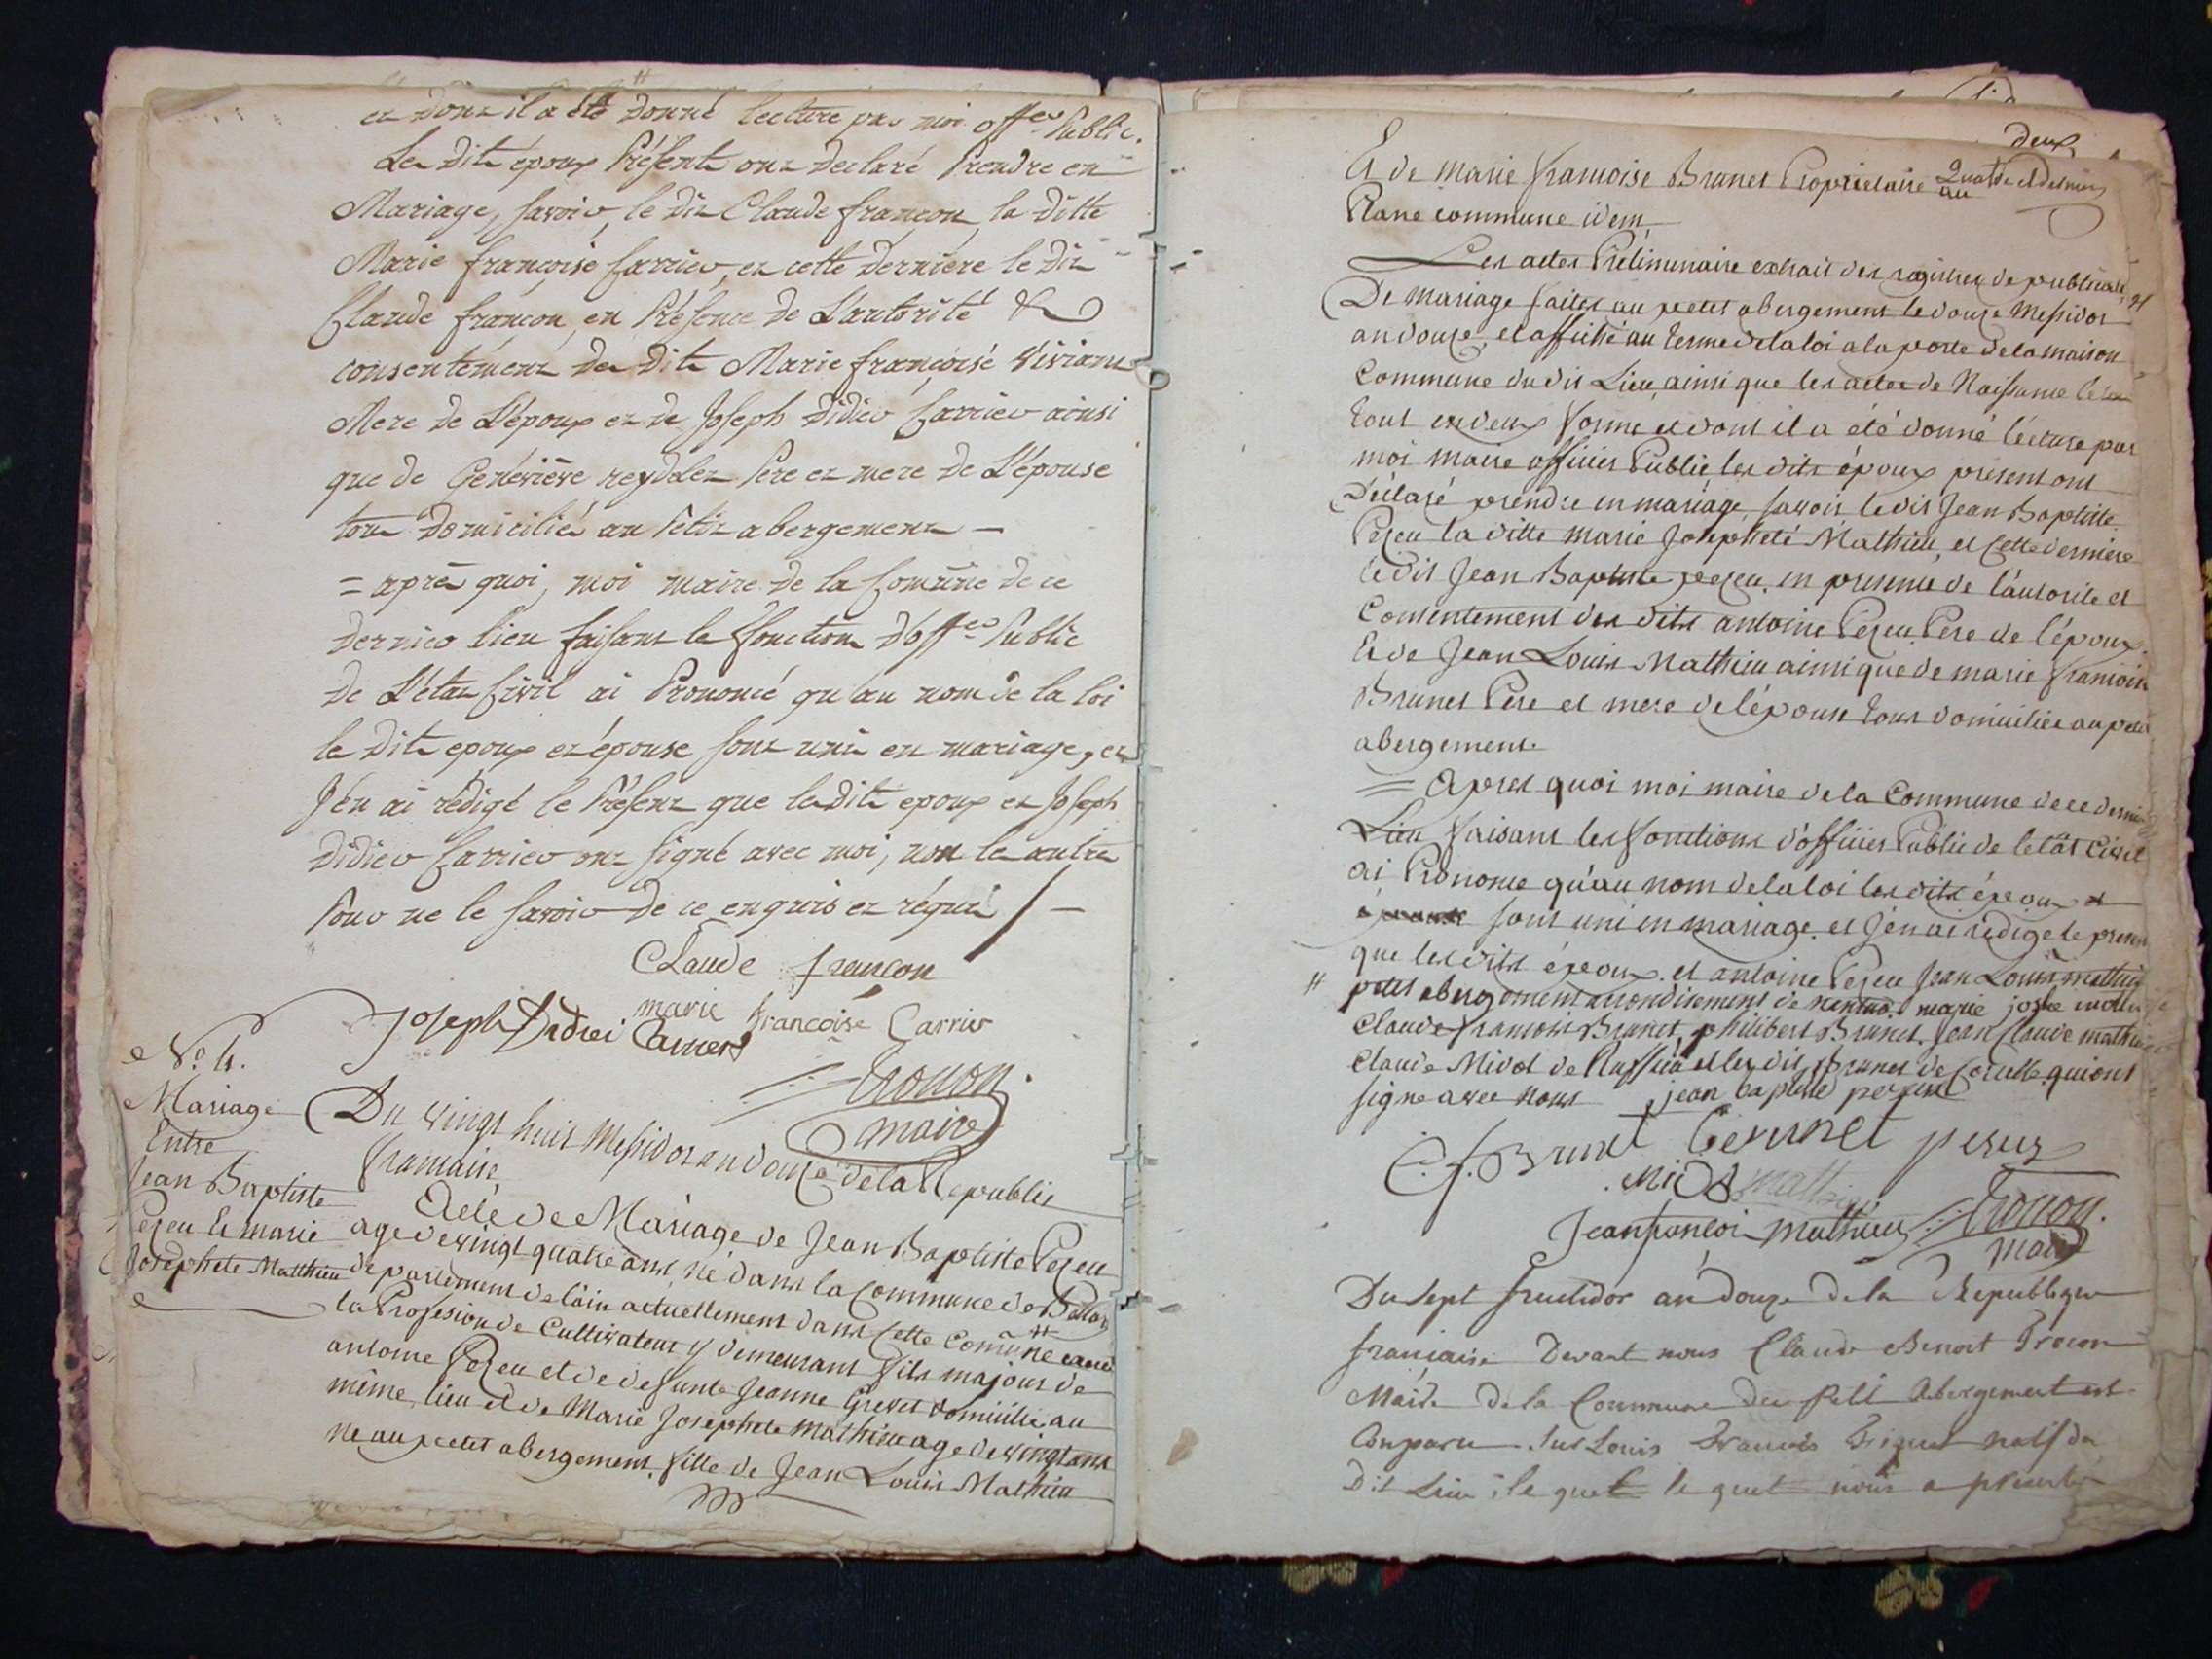 et dont il a été donné lecture par moi off.er Public.
Les Dits époux Présents ont Declaré Prendre en
Mariage, savoir, le Dit Claude françon, la Ditte
Marie françoise Carrier, et cette Derniere le Dit
Claude françon, en Présence de L'autorité &
consentement des Dits Marie françoise Viviant
Mere de L'époux et de Joseph Didier Carrier ainsi
que de Geneviève reydelet Pere et mere de L'épouse
tous Domiciliés au Petit abergement —
= après quoi, moi maire de la Comune de ce
Dernier lieu faisant les fonctions D'off.er Public
De L'état Civil ai Prononcé qu'au nom de la loi
les Dits epoux et épouse sont unis en mariage, et
J'en ai rédigé le Présent que les Dits epoux et Joseph
Didier Carrier ont signé avec moi, non les autres
Pour ne le savoir De ce enquis et réquis / —
Claude françon
marie francoise Carrier
Joseph Didiei Carrier
maire
N.o 4.
Mariage
Entre
Jean Baptiste
Pezeu Et marie
Josephete Matthieu
Du vingt huit Messidor an douze de la Republic
franncaise,
Acte de Mariage de Jean Baptiste Pezeu
age de vingt quatre ans, né dans la Commune de
departement de l'ain actuellement dans Cette Comune
la Profesion de Cultivateur y demeurant fils majour de
antoine Pezeu et de defunte Jeanne Grevet domicilié au
même lieu et de Marie Josephete Mathieu age de vingt ans
ne au petet abergement, fille de Jean Louis Mathieu
deux
Et de Marie francoise Brunet Propriétaire au
Plane commune idem,
Les actes Préliminaire extrait des registres de publicat
De Mariage faites au petet abergement le douze Messidor
an douze, et affiché au terme de la loi a la porte de la maison
Commune du dit Lieu, ainsi que les actes de Naissance le
tout en deux forme et dont il a été donné lécture par
moi maire officier Public, les dits époux présent ont
Déclaré prendre en mariage, savoir le dit Jean Baptiste
Pezeu la ditte marie Josepheté Mathieu, et Cette derniere
le dit Jean Baptiste pezeu, en presence de l'autorité et
Consentement des dits antoine Pezeu Pere de l'époux.
Et de Jean Louis Mathieu ainsi que de marie francoise
Brunet Pere et mere de l'épouse tous domiciliés au petet
abergement.
= Apres quoi moi maire de la Commune de ce dernier
Lieu faisant les fonctions d'officier Public de letat Civil
ai Prononcé qu'au nom de la loi les dits époux et
sont uni en mariage et J'en ai rédigé le present
que les dits époux et antoine Pezeu Jean Louis mathieu
# petet abergement arrondisement de nantua. marie
Claude francois Brunet, philibert Brunet. Jean Claude mathieu
Claude Midol de Ruffieu et les dits Brunet de qui ont
signe avec nous jean baptiste pezeux
C. f. Brunet Brunet pezeux
Midol Matthieu
Jean françois mathieu
maire
Du sept fructidor an douze De la Republique
française Devant nous Claude Benoit
Maire De la Commune du petit Abergement est
Comparu Sr Louis françois natif du
Dit Lieu, le quel le quel nous a présenté